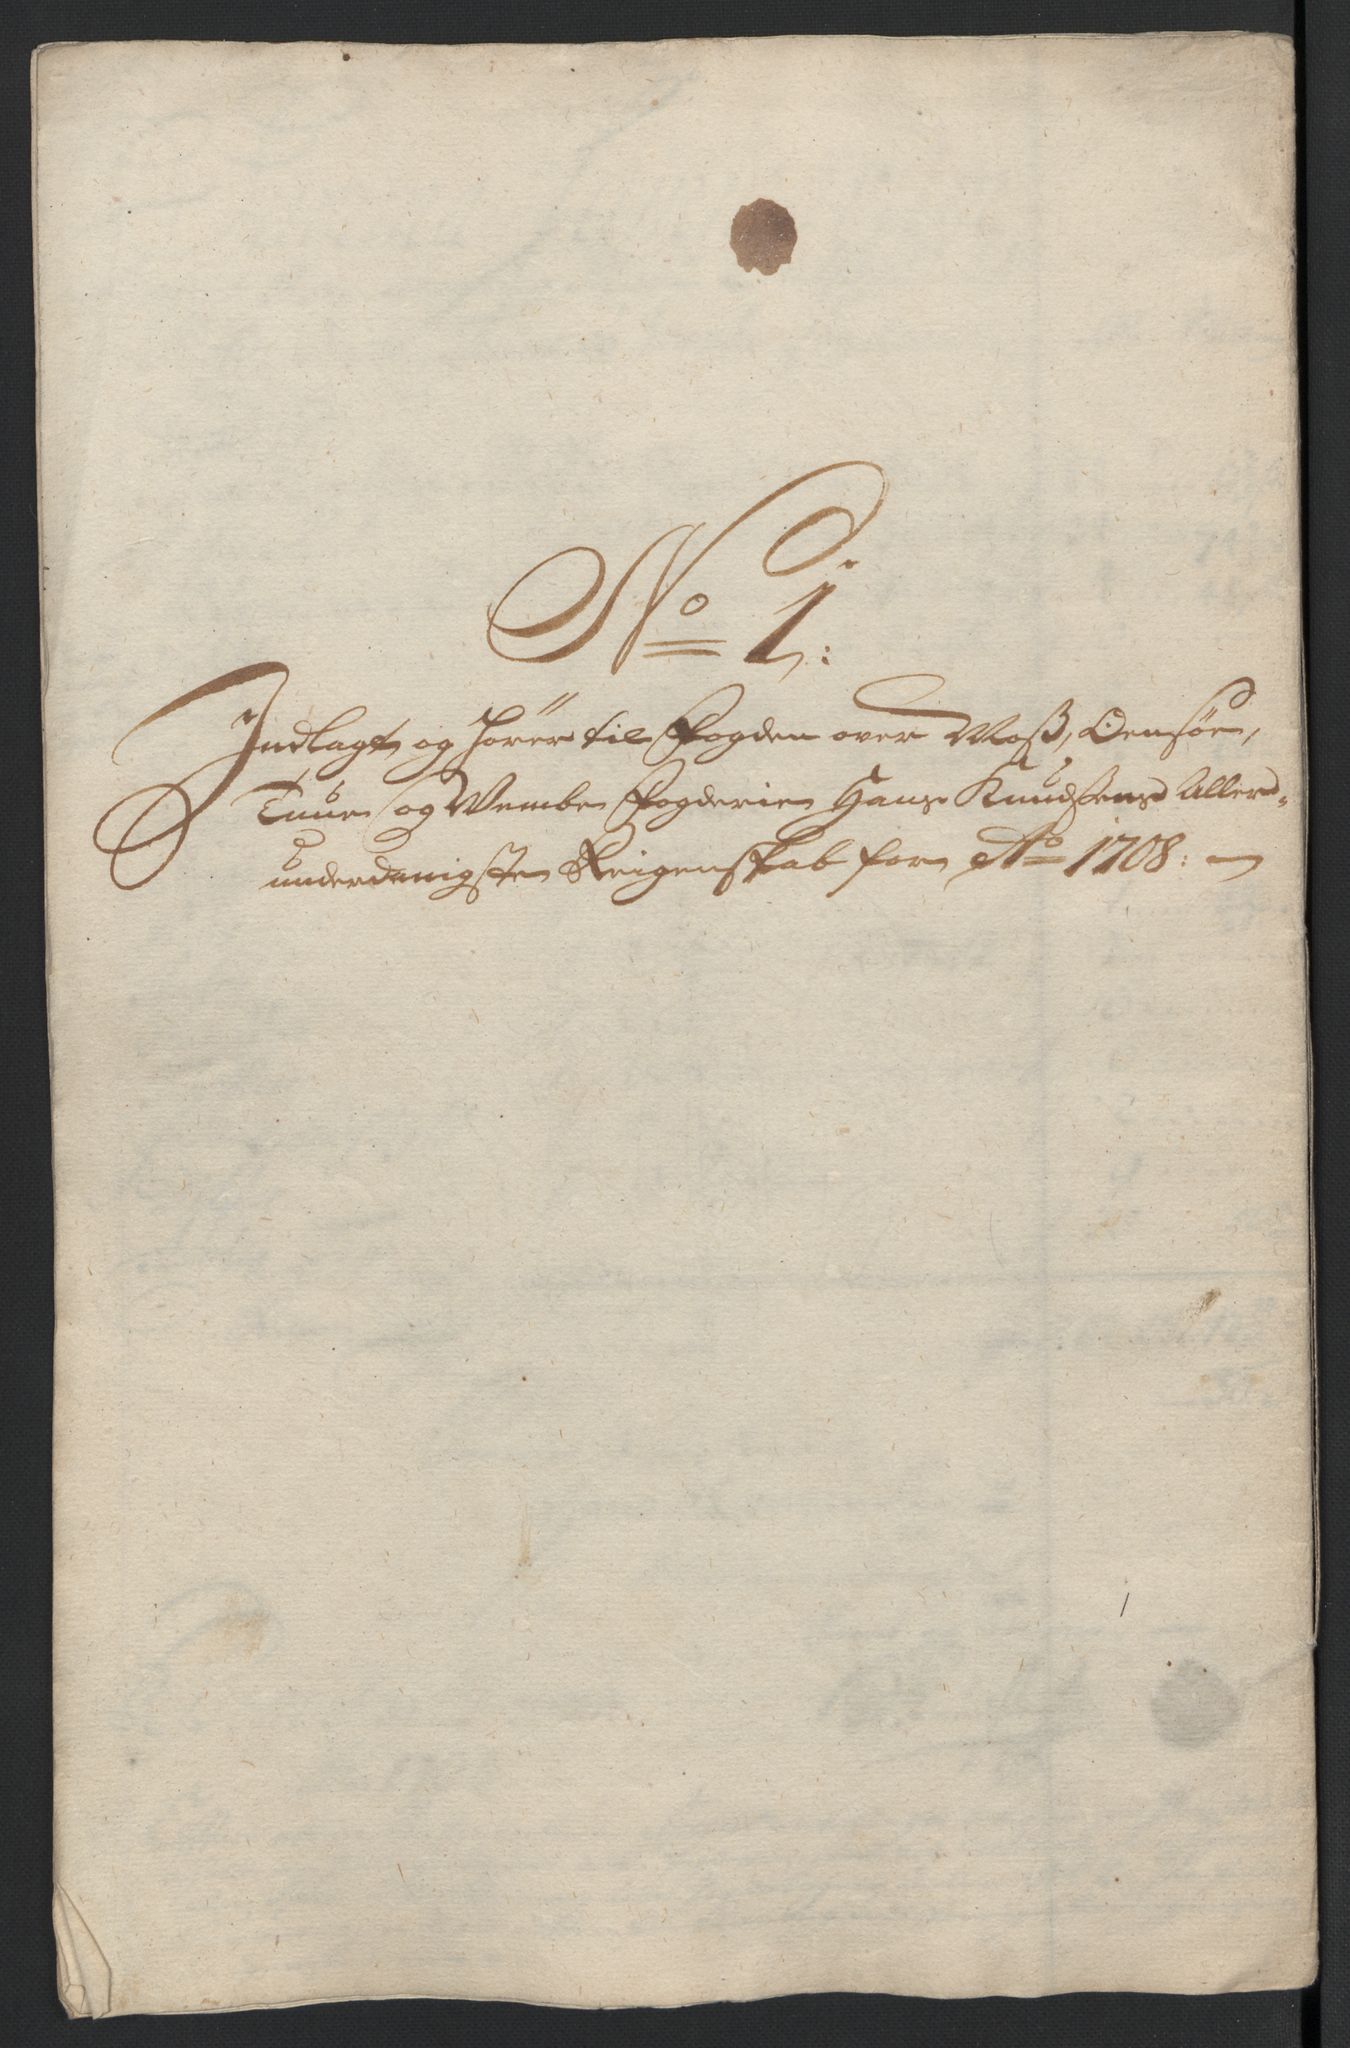 No 1:
Indlagt og hører til Fogden over Moß, Oensøe,
Tuue og Wembe Fogderier Hans Knudsens Aller-
underdanigste Reigenskab for Ao 1708:
1